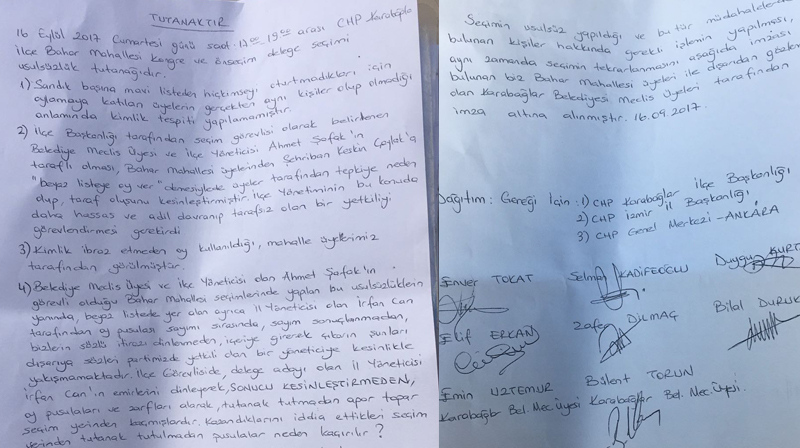 TUTANAKTIR
16 Eylül 2017 Cumartesi günü saat 17.00-19.00 arası CHP Karabağlar
ilçe Bahar Mahallesi kongre ve önseçim delege seçimi
usulsüzlük tutanağıdır.
1) Sandık başına mavi listeden hiçkimseyi oturtmadıkları için
oylamaya katılan üyelerin gerçekten aynı kişiler olup olmadığı
anlamında kimlik tespiti yapılamamıştır.
2) İlçe Başkanlığı tarafından seçim görevlisi olarak belirlenen
Belediye Meclis Üyesi ve İlçe Yöneticisi Ahmet Şafak'ın
taraflı olması, Bahar Mahallesi üyelerinden Şehriban Keskin Çaylak'a
"beyaz listeye oy ver" demesiylede üyeler tarafından tepkiye neden
olup, taraf oluşunu kesinleştirmiştir. İlçe Yönetiminin bu konuda
daha hassas ve adil davranıp tarafsız olan bir yetkiliyi
görevlendirmesi gerekirdi
3) Kimlik ibraz etmeden oy kullanıldığı, mahalle üyelerimiz
tarafından görülmüştür.
4) Belediye Meclis Üyesi ve ilçe Yöneticisi olan Ahmet Şafak'ın
görevli olduğu Bahar Mahallesi seçimlerinde yapılan bu usulsüzlüklerin
yanında, beyaz listede yer alan ayrıca İl Yöneticisi olan İrfan Can
tarafından oy pusulası sayımı sırasında, sayım sonuçlanmadan,
bizlerin sözlü itirazı dinlenmeden, içeriye girerek çıkarın şunları
dışarıya sözleri partimizde yetkili olan bir yöneticiye kesinlikle
yakışmamaktadır. İlçe Görevliside, delege adayı olan İl Yöneticisi
İrfan Can'ın emirlerini dinleyerek, SONUCU KESİNLEŞTİRMEDEN,
oy pusulaları ve zarfları alarak, tutanak tutmadan apar topar
seçim yerinden kaçmışlardır. Kazandıklarını iddia ettikleri seçim
yerinden tutanak tutulmadan pusulalar neden kaçırılır?
Seçimin usulsüz yapıldığı ve bu tür müdahalelerde
bulunan kişiler hakkında gerekli işlemin yapılması,
aynı zamanda seçimin tekrarlanmasını aşağıda imzası
bulunan biz Bahar Mahallesi üyeleri ile dışarıdan gözlemci
olan Karabağlar Belediyesi Meclis Üyeleri tarafından
imza altına alınmıştır. 16.09.2017.
Dağıtım: Gereği İçin: 1) CHP Karabağlar İlçe Başkanlığı
2) CHP İzmir İl Başkanlığı
3) CHP Genel Merkezi - ANKARA
Enver TOKAT Selma KADİFEOĞLU Duygu KURT
Elif ERKAN Zafer DİLMAÇ Bilal DURUK
Emin UZTEMUR Bülent TORUN
Karabağlar Bel. Mec. Üyesi Karabağlar Bel. Mec. Üyesi.